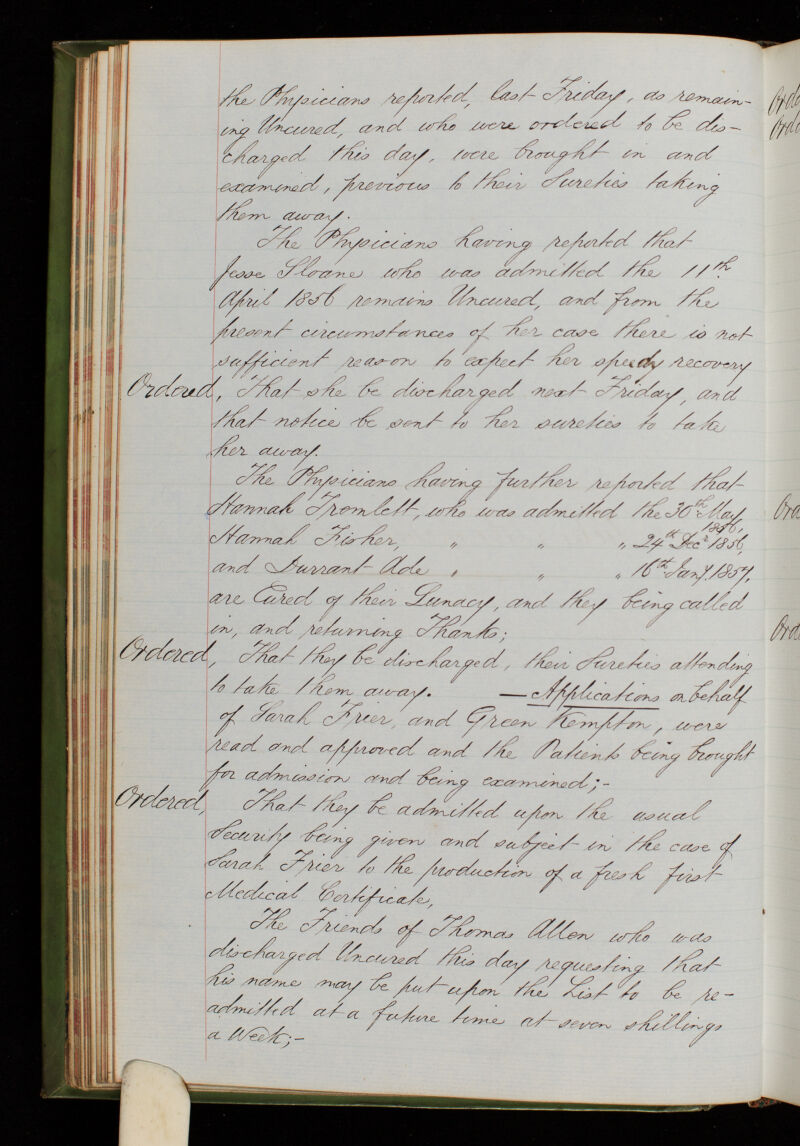 the Physicians reported, last Friday, as remain-
ing Uncured, and who were ordered to be dis-
charged this day, were brought in and
examined, previous to their Sureties taking
them away.
The Physicians having reported that
Jesse Sloane who was admitted the 11th
April 1856 remains Uncured, and from the
present circumstances of her case there is not
sufficient reason to expect her speedy recovery
Ordered, That she be discharged next Friday, and
that notice be sent to her sureties to take
her away.
The Physicians having further reported that
Hannah Tromlett, who was admitted the 30th May 1856,
Hannah Fisher, " " " 24th Decr 1856,
and Durrant Ade " " " 16th Jany. 1857,
are Cured of their Lunacy, and they being called
in, and returning Thanks;
Ordered, That they be discharged, their Sureties attending
to take them away. — Applications on behalf
of Sarah Frier, and Green Kempton, were
read and approved and the Patients being brought
for admission and being examined;-
Ordered, That they be admitted upon the usual
Security being given and subject in the case of
Sarah Frier to the production of a fresh first
Medical Certificate,
The Friends of Thomas Allen who was
discharged Uncured this day requesting that
his name may be put upon the List to be re-
admitted at a future time at seven shillings
a Week;-